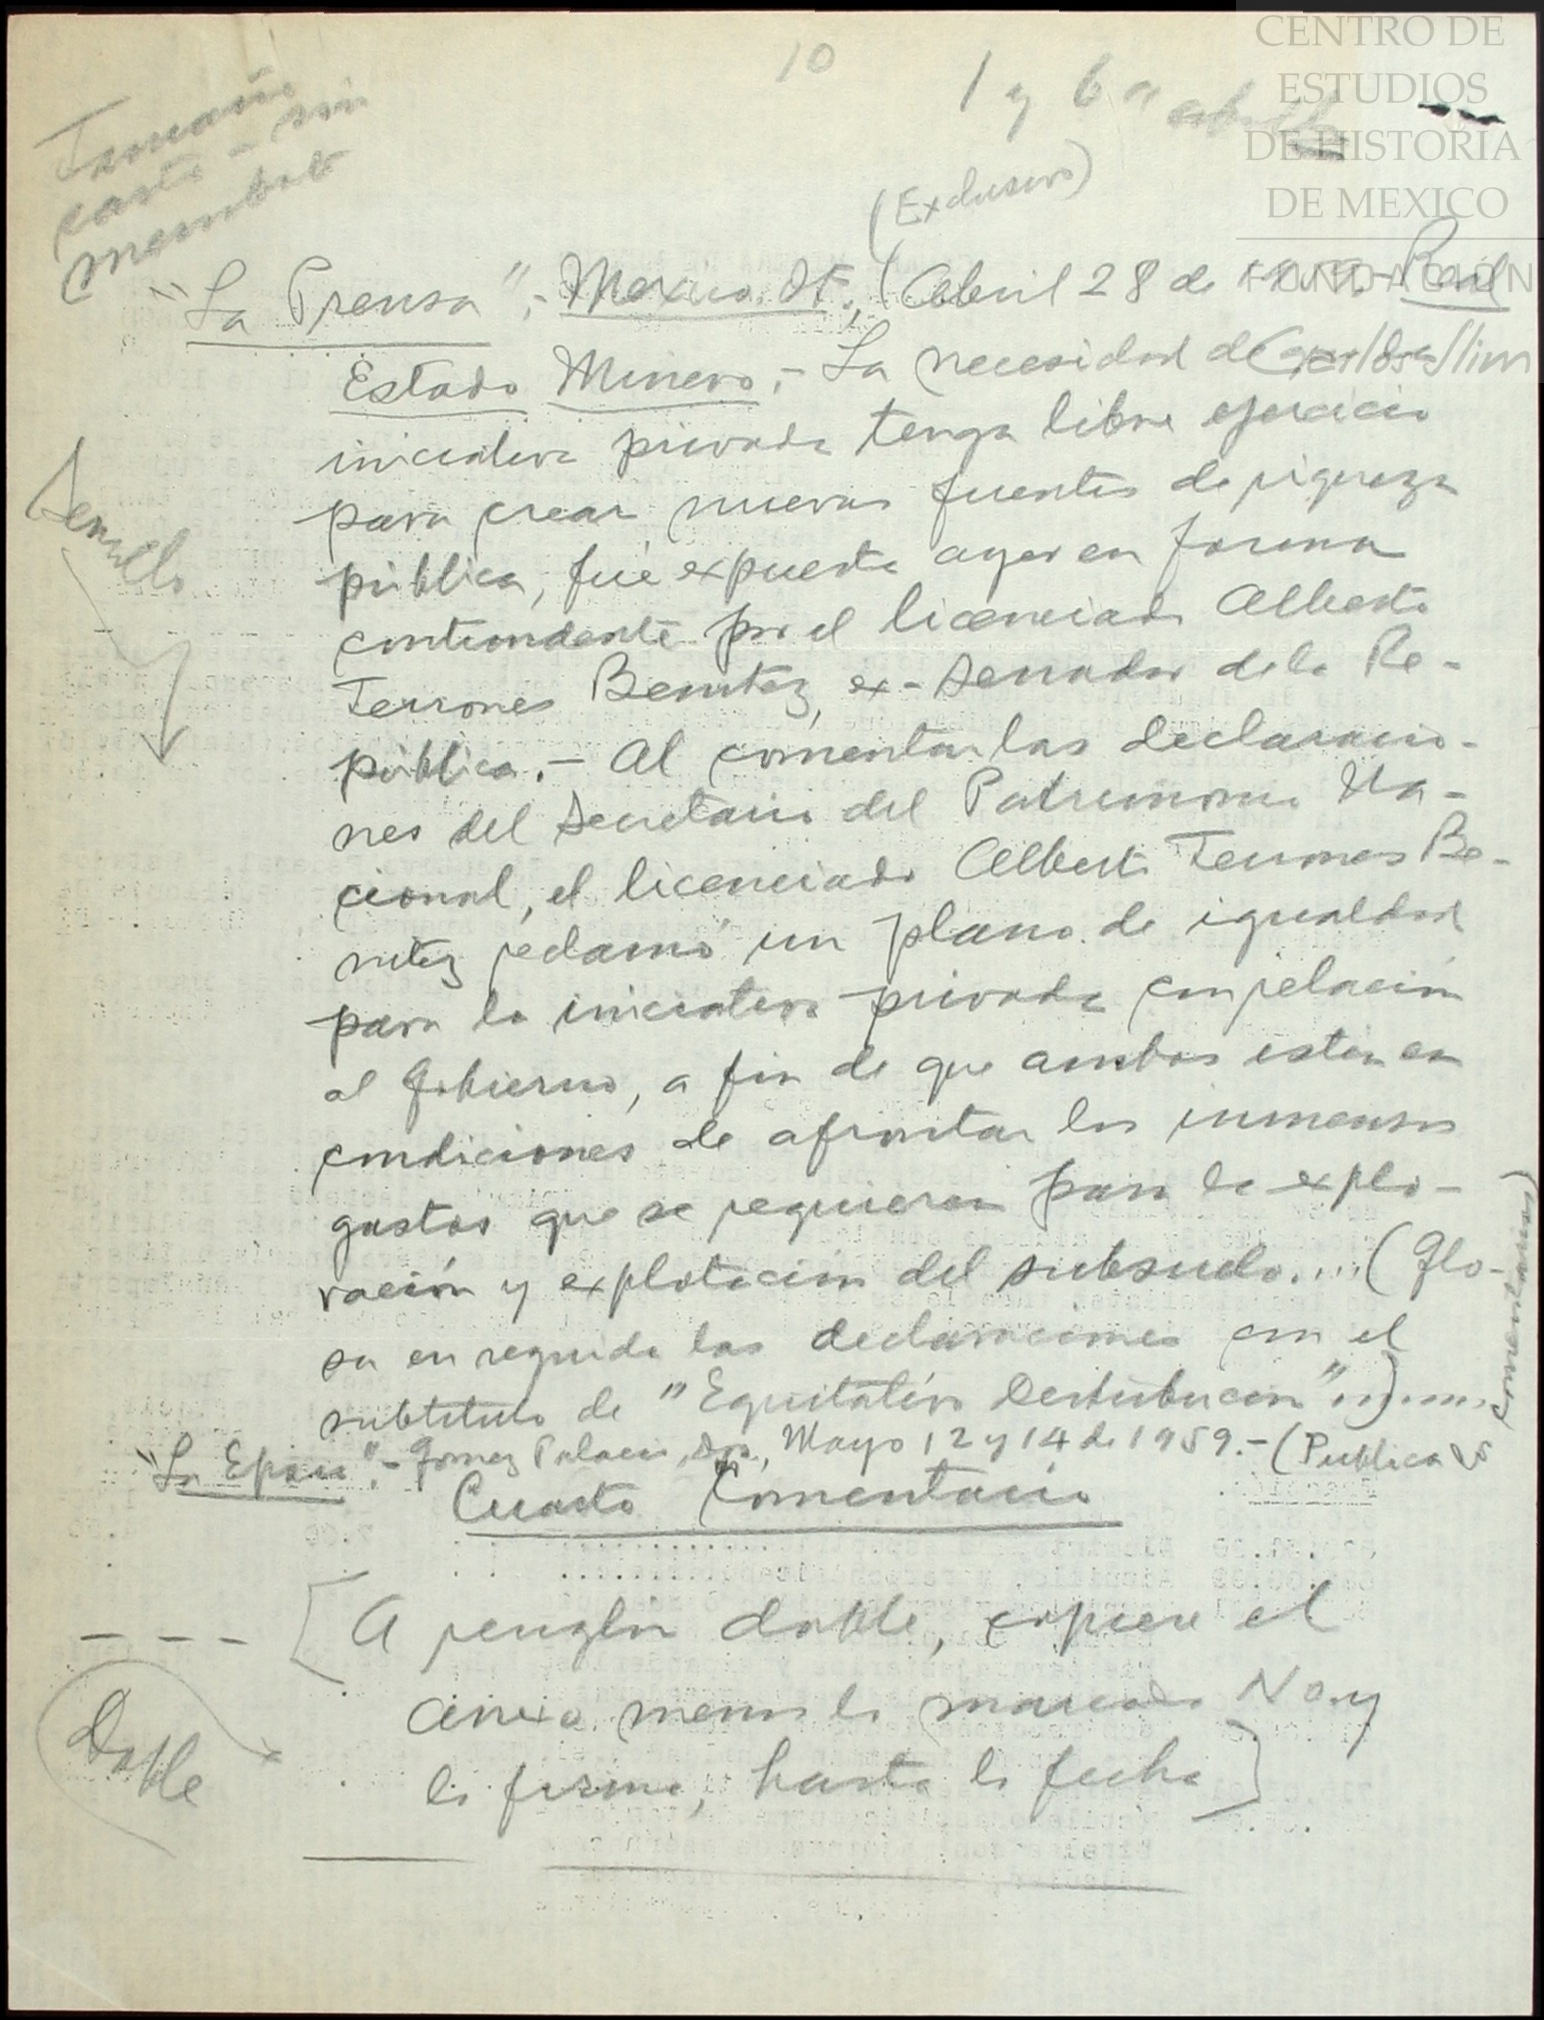 10
1 y 6 a
CENTRO DE
ESTUDIOS
DE HISTORIA
DE MEXICO
FUNDACIÓN
Carlos Slim
Tamaño
carta - sin
membrete
(Exclusivo)
"La Prensa",- Mexico, D.F., (Abril 28 de Real
Estado Minero.- La necesidad de que la
iniciativa privada tenga libre ejercicio
para crear nuevas fuentes de riqueza
pública, fué expuesta ayer en forma
contundente por el licenciado Alberto
Terrones Benitez, ex-senador de la Re-
pública.- Al comentar las declaracio-
nes del Secretario del Patrimonio Na-
cional, el licenciado Alberto Terrones Be-
nitez reclamó un plano de igualdad
para la iniciativa privada con relación
al Gobierno, a fin de que ambos esten en
condiciones de afrontar los inmensos
gastos que se requieren para la explo-
ración y explotación del subsuelo....(Glo-
sa en seguida las declaraciones con el
subtitulo de "Equitativa Distribucion"..).....
"La Epoca".- Gomez Palacio, Dgo., Mayo 12 y 14 de 1959.- (Publica los
comentarios)
Cuarto Comentario
Sencillo
[A renglón doble, copiese el
anexo menos lo marcado No. y
la firma, hasta la fecha]
Doble